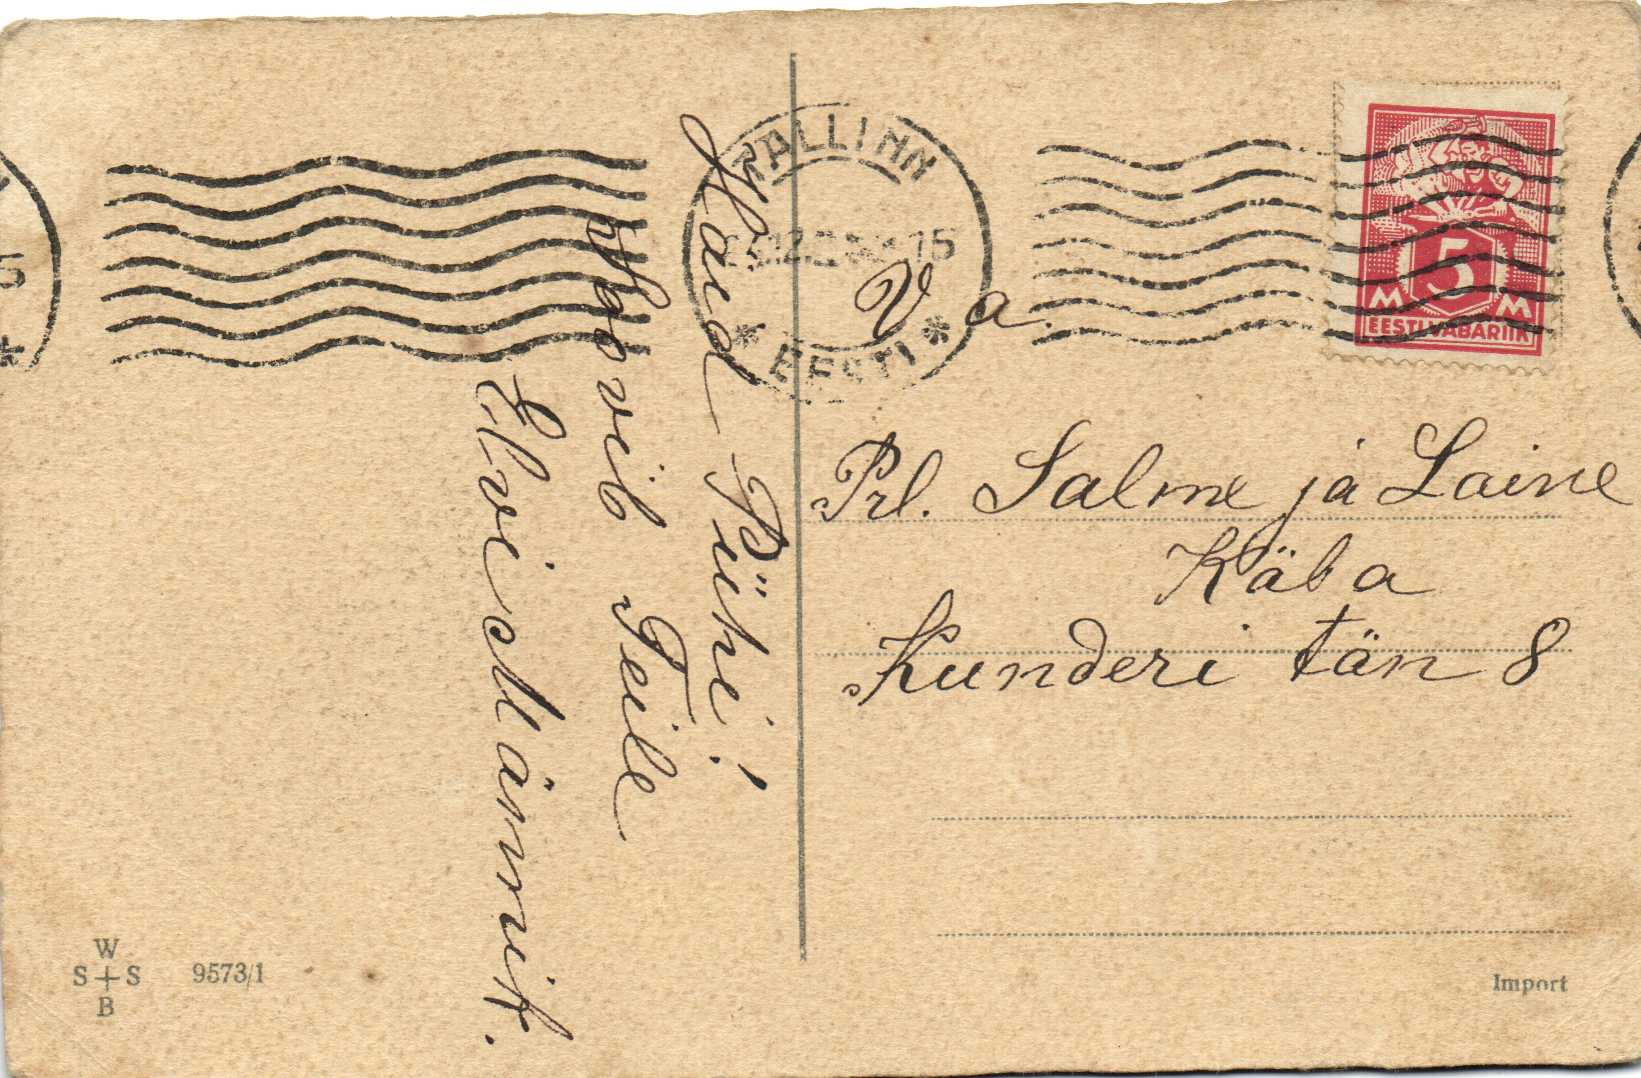 Häid Pühi!
Soovib Teile
Elvi Männik.
TALLINN
15
* EESTI *
V a.
5
M M
EESTI VABARIIK
Prl. Salme ja Laine
Käba
Kunderi tän 8
W
S S
B
9573/1
Import
5
*